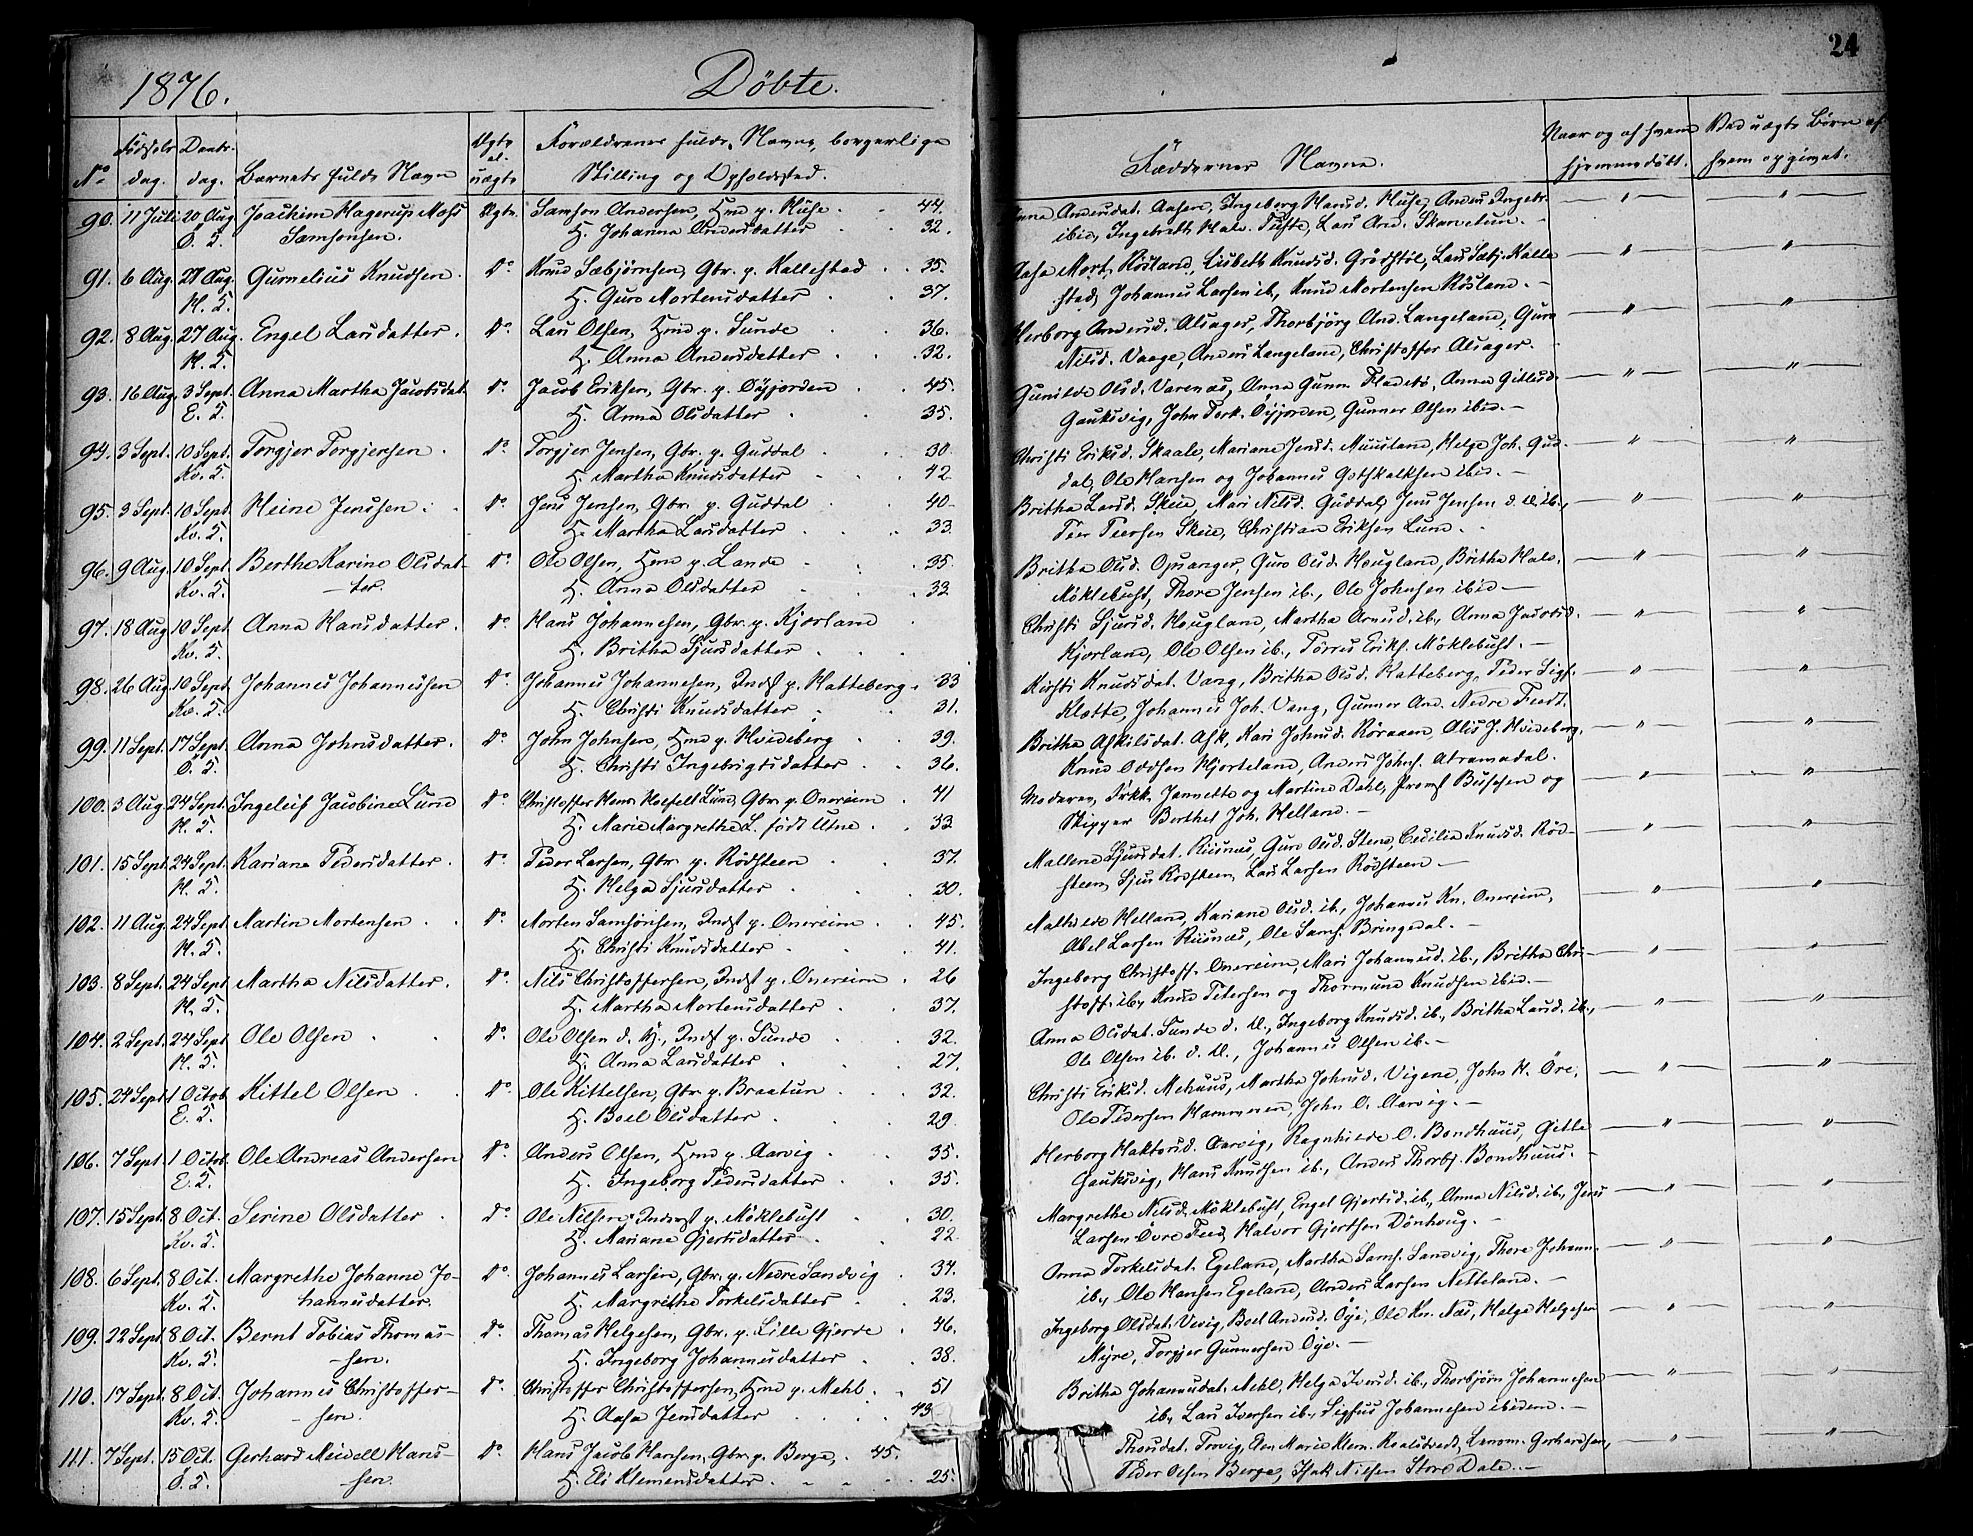 24
1876. Døbte.
No Fødsels- dag. Daabs- dag. Barnets fulde Navn Ægte el. uægte Forældrenes fulde Navne, borgerlige Stilling og Opholdssted. Faddernes Navne. Naar og af hvem hjemmedøbt. Ved uægte Børn af hvem opgivet.
90. 11 Juli 20 Aug. Joachim Hagerup Mohs Ægte. Samson Andersen, Hmd p. Huse 44. Andersdat. Aasen, Ingeborg Hansd. Huse, Anders Ingebr. — " — — " —
Ö. 5. Samsonsen. H. Johanna Andersdatter 32. ibid, Ingebreth Halv. Tufte, Lars And. Skarvetun. —
91. 6 Aug. 27 Aug. Gurnelius Knudsen. do Knud Sæbjørnsen, Gbr. p. Kallestad 35. Aasa Mort. Røsland, Lisbeth Knudsd. Lars Sæbj. Kalle- — " — — " —
H. 5. H. Guro Mortensdatter 37. stad, Johannes Larsen ib., Knud Mortensen Røsland. —
92. 8 Aug. 27 Aug. Engel Larsdatter. do Lars Olsen, Hmd p. Sunde 36. Herborg Andersd. Alsager, Thorbjörg And. Langeland, Guro — " — — " —
H. 5. H. Anna Andersdatter 32. Nilsd. Vaage, Anders Langeland, Christoffer Alsager.
93. 16 Aug. 3 Sept. Anna Martha Jacobsdat. do Jacob Eriksen, Gbr. p. Øyjorden 45. Gunilde Olsd. Varenæs, Anna Gunn. Fladebö, Anna Gitlesd. — " — — " —
E. 5. H. Anna Olsdatter 35. Gauksvig, John Tork. Øyjorden, Gunner Olsen ibid. —
94. 3 Sept. 10 Sept. Torgjer Torgjersen. do Torgjer Jensen, Gbr. p. Guddal 30. Christi Eriksd. Skaale, Mariane Jensd. Muusland, Helge Joh. Gud- — " — — " —
Kv. 5. H. Martha Knudsdatter 42 dal, Ole Hansen og Johannes Gotskalksen ibid. —
95. 3 Sept. 10 Sept. Heine Jensen. do Jens Jensen, Gbr. p. Guddal 40. Britha Larsd. Skeie, Mari Nilsd. Guddal, Jens Jensen d. Æ. ib., — " — — " —
Kv. 5. H. Martha Larsdatter 33 Peer Peersen Skeie, Christian Eriksen Lund.
96. 9 Aug. 10 Sept. Berthe Karine Olsdat- do Ole Olsen, Hmd p. Lande 35. Britha Olsd. Opsanger, Guro Olsd. Hougland, Britha Halv. — " — — " —
Kv. 5. — ter. H. Anna Olsdatter 33 Møklebust, Thore Jensen ib., Ole Johnsen ibid —
97. 18 Aug. 10 Sept. Anna Hansdatter. do Hans Johannesen, Gbr. p. Kjærland Christi Sjursd. Hougland, Martha Arnesd. ib., Anna Jacobsd. — " — — " —
Kv. 5. H. Britha Sjursdatter Kjærland, Ole Olsen ib., Tørris Eriks. Møklebust. —
98. 26 Aug. 10 Sept. Johannes Johannessen do Johannes Johannesen, Indst p. Hatteberg 33 Kirsti Knudsdat. Vang, Britha Olsd. Hatteberg, Peder Sigf. — " — — " —
Kv. 5. H. Christi Knudsdatter 31. Klætte, Johannes Joh. Vang, Gunner And. Nedre Feedt.
99. 11 Sept. 17 Sept. Anna Johnsdatter. do John Johnsen, Hmd p. Hvideberg 39. Britha Askilsdat. Ask, Kari Johnsd. Røraaen, Alis J. Hvideberg, — " — — " —
Ö. 5. H. Christi Ingebrigtsdatter 36. Knud Oddsen Hjorteland, Anders Johns. Atramadal.
100. 3 Aug. 24 Sept. Ingeleif Jacobine Lund do Christoffer Hans Lund, Gbr. p. Onereim 41 Moderen, Frkk. Jannette og Martine Dahl, og — " — — " —
H. 5. H. Marie Margrethe L. født Utne 33 Skipper Berthel Joh. Helland. —
101. 15 Sept. 24 Sept. Kariane Pedersdatter. do Peder Larsen, Gbr. p. Rødsteen 37. Mallene Sjursdat. Riisnæs, Guro Olsd. Stene, Cecilie Knudsd. Rød- — " — — " —
H. 5. H. Helga Sjursdatter 30. steen, Sjur Rødsteen, Lars Larsen Rødsteen —
102. 11 Aug. 24 Sept. Martin Mortensen do Morten Samsonsen, Indst p. Onereim 45. Mathilde Helland, Kariane Olsd. ib., Johannes Kn. Onereim, — " — — " —
H. 5. H. Christi Knudsdatter 41. Abel Larsen Riisnæs, Ole Sams. Bringedal. —
103. 8 Sept. 24 Sept. Martha Nilsdatter. do Nils Christoffersen, Indst p. Onereim 26 Ingeborg Christoff. Onereim, Mari Johannesd. ib., Britha Chri- — " — — " —
H. 5. H. Martha Mortensdatter 37. stoff. ib., Knud Petersen og Thormund Knudsen ibid. —
104. 2 Sept. 24 Sept. Ole Olsen do Ole Olsen d. Y., Indst p. Sunde 32. Anna Olsdat. Sunde d. Æ., Ingeborg Knudsd. ib., Britha Larsd. ib., — " — — " —
H. 5. H. Anna Larsdatter 27. Ole Olsen ib. d. Æ., Johannes Olsen ib. —
105. 24 Sept. 1 Octob. Kittel Olsen do Ole Kittelsen, Gbr. p. Braatun 32. Christi Eriksd. Mehuus, Martha Johnsd. Vigene, John H. Øre, — " — — " —
E. 5. H. Boel Olsdatter 29. Ole Pedersen Hammeren, John O. Aarvig. —
106. 7 Sept. 1 Octob. Ole Andreas Andersen do Anders Olsen, Hmd p. Aarvig 35. Herborg Haktorsd. Aarvig, Ragnhilde O. Bondhuus, Gitle — " — — " —
E. 5. H. Ingeborg Pedersdatter 35. Gauksvig, Hans Knudsen ib., Anders Thorbj. Bondhuus. —
107. 15 Sept. 8 Oct. Serine Olsdatter do Ole Nilsen, Inderst p. Møklebust 30. Margrethe Nilsd. Møklebust, Engel Gjertsd. ib., Anna Nilsd. ib., Jens — " — — " —
Kv. 5. H. Mariane Gjertsdatter 22. Larsen Øvre Feed, Halvor Gjertsen Dønhoug. —
108. 6 Sept. 8 Oct. Margrethe Johanne Jo- do Johannes Larsen, Gbr. p. Nedre Sandvig 34. Anna Torkelsdat. Egeland, Martha Sams. Sandvig, Thore Johann. — " — — " —
Kv. 5. hannesdatter. H. Margrethe Torkelsdatter 23. ib., Ole Hansen Egeland, Anders Larsen Netteland. —
109. 22 Sept. 8 Oct. Bernt Tobias Thomas- do Thomas Helgesen, Gbr. p. Lille Gjerde 46. Ingeborg Olsdat. Vevig, Boel Andersd. Øye, Ole Kn. Næs, Helge Helgesen — " — — " —
Kv. 5. — sen. H. Ingeborg Johannesdatter 38. Myre, Torgjer Gunnersen Øye. —
110. 17 Sept. 8 Oct. Johannes Christoffer- do Christoffer Christoffersen, Hmd p. Mehl 51 Britha Johannesdat. Mehl, Helga Iversd. ib., Thorbjørn Johannesen — " — — " —
Kv. 5. — sen. H. Aasa Jensdatter 43 ib., Lars Iversen ib., Sigfus Johannesen ibidem. —
111. 7 Sept. 15 Oct. Gerhard Meidell Hans- do Hans Jacob Hansen, Gbr. p. Berge 45. Thosdat. Trovig, Elen Marie Klem. Gerhardsen, — " — — " —
Ö. 5. — sen. H. Eli Klemensdatter 25. Peder Olsen Berge, Isak Nilsen Store Dale. —